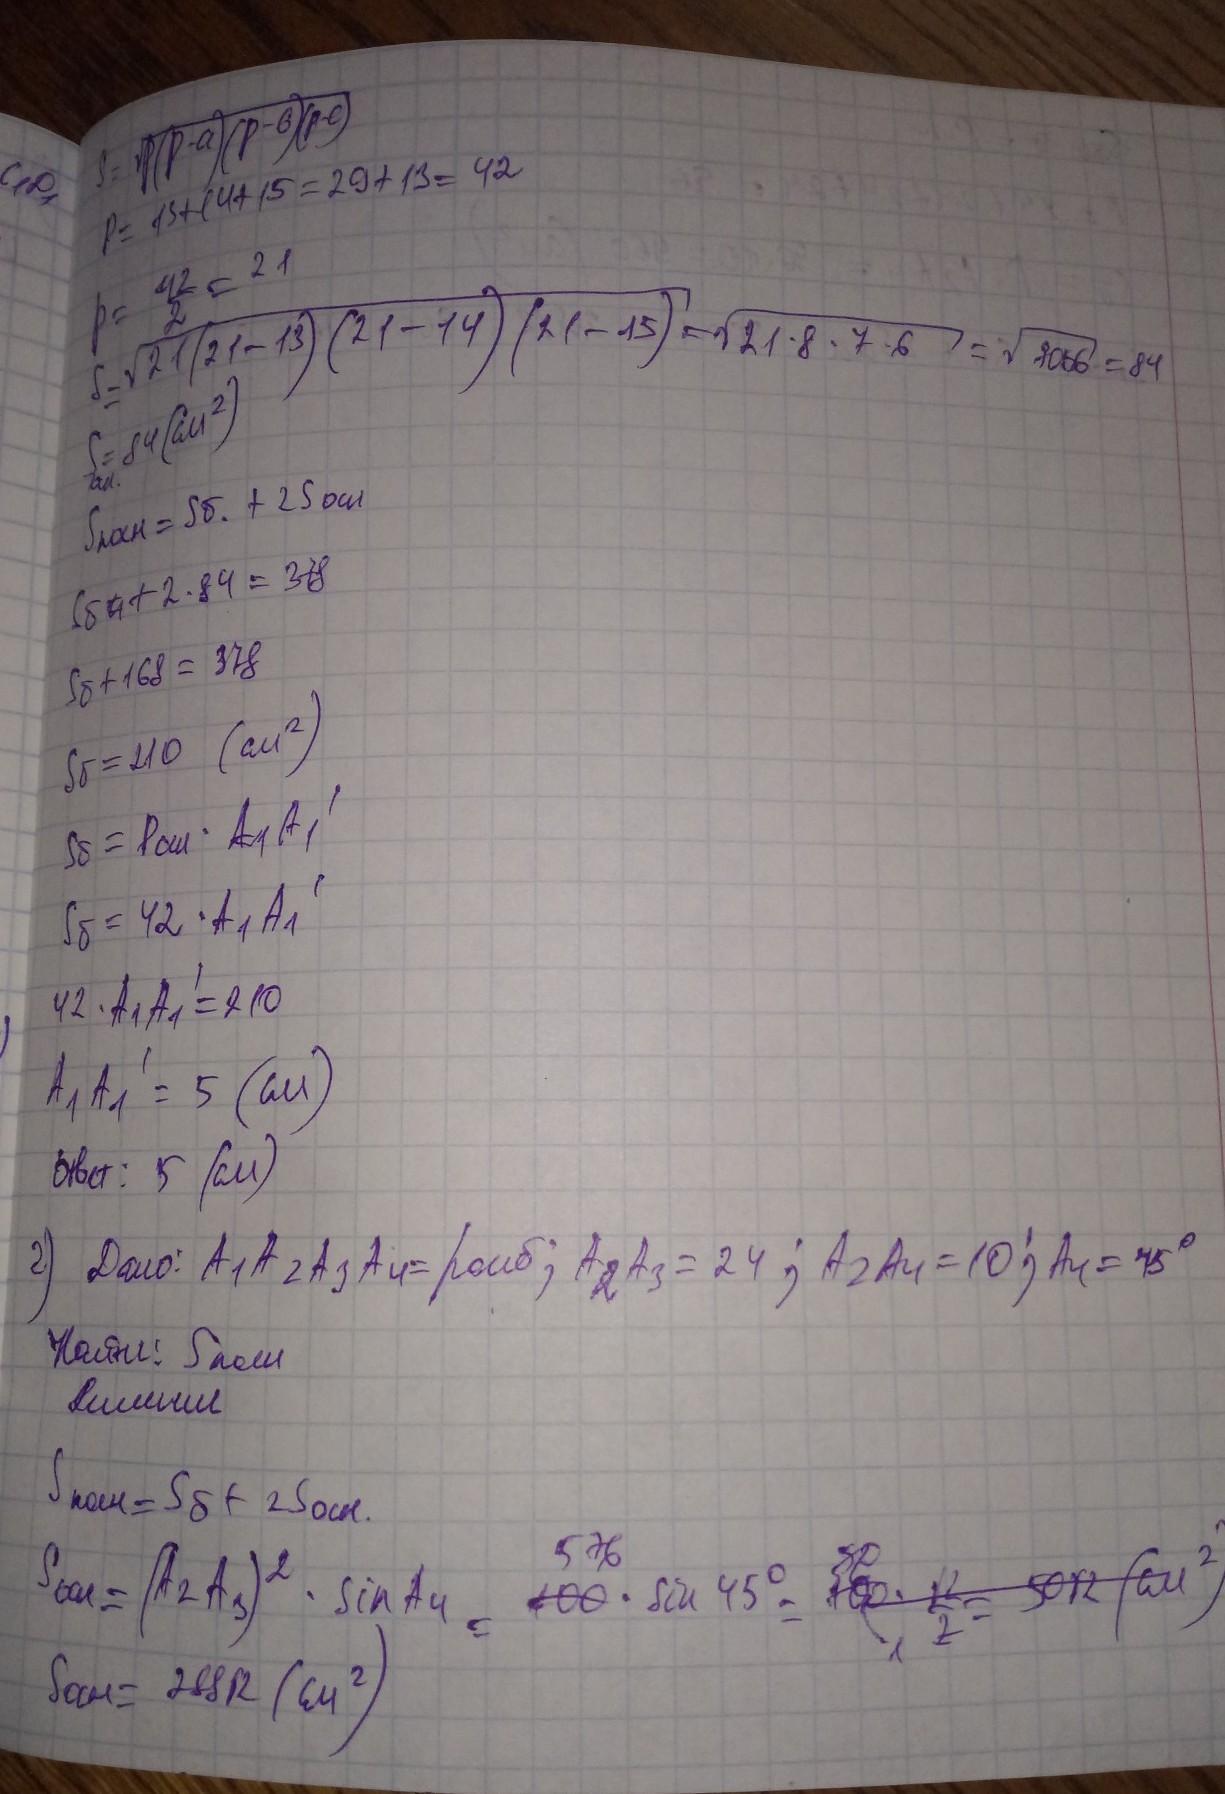 S = √p(p-a)(p-в)(p-c)
P = 13+14+15 = 29+13 = 42
p = 42/2 = 21
S = √21(21-13)(21-14)(21-15) = √21·8·7·6 = √7056 = 84
S = 84 (см²)
Sполн = Sб. + 2Sосн
Sб + 2·84 = 378
Sб + 168 = 378
Sб = 210 (см²)
Sб = Pосн · A₁A₁'
Sб = 42 · A₁A₁'
42 · A₁A₁' = 210
A₁A₁' = 5 (см)
Ответ: 5 (см)
2) Дано: A₁A₂A₃A₄ = ромб; A₂A₃ = 24; A₂A₄ = 10; A₄ = 45°
Найти: Sполн
Решение
Sполн = Sб + 2Sосн.
Sосн = (A₂A₃)² · sin A₄ = 576 · sin 45° =
Sосн = 288√2 (см²)